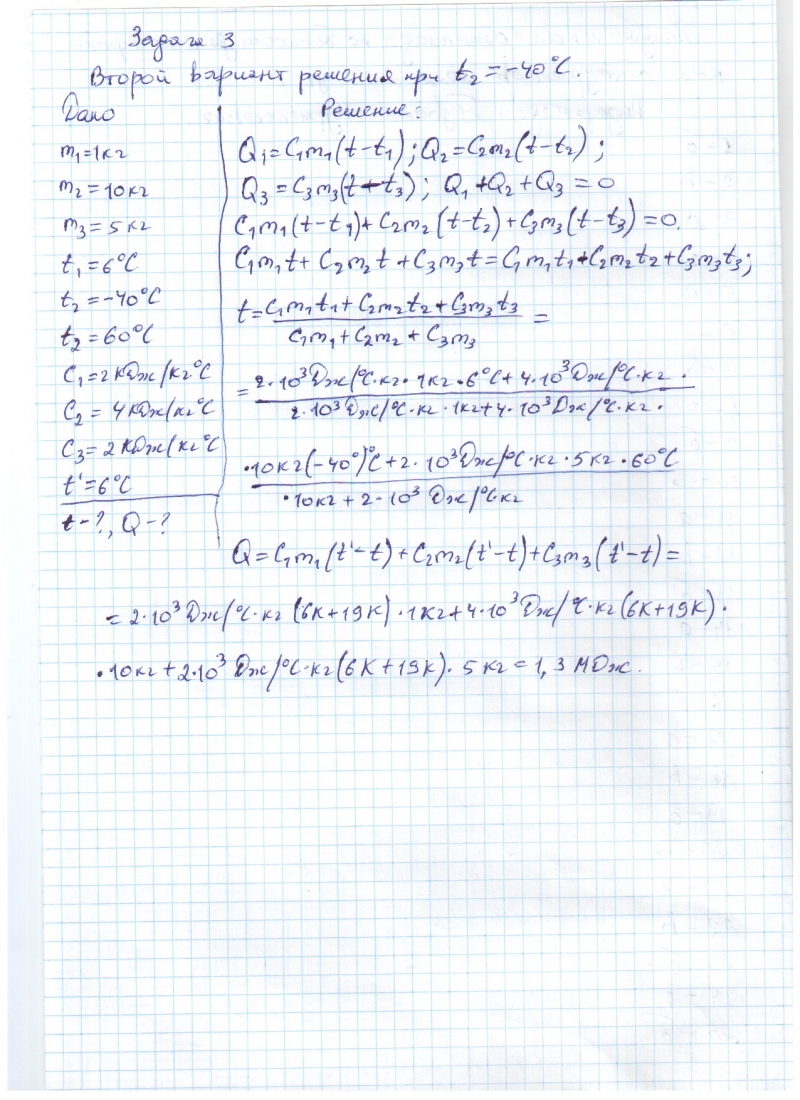 Задача 3
Второй вариант решения при t₂ = -40°C.
Дано
m₁=1кг
m₂=10кг
m₃=5кг
t₁=6°C
t₂=-40°C
t₂=60°C
C₁=2кДж/кг°C
C₂=4кДж/кг°C
C₃=2кДж/кг°C
t'=6°C
t-?, Q-?
Решение:
Q₁=C₁m₁(t-t₁); Q₂=C₂m₂(t-t₂);
Q₃=C₃m₃(t-t₃); Q₁+Q₂+Q₃=0
C₁m₁(t-t₁)+C₂m₂(t-t₂)+C₃m₃(t-t₃)=0.
C₁m₁t+C₂m₂t+C₃m₃t=C₁m₁t₁+C₂m₂t₂+C₃m₃t₃;
t=C₁m₁t₁+C₂m₂t₂+C₃m₃t₃ =
C₁m₁+C₂m₂+C₃m₃
= 2·10³Дж/°C·кг·1кг·6°C+4·10³Дж/°C·кг·
2·10³Дж/°C·кг·1кг+4·10³Дж/°C·кг·
·10кг(-40°)°C+2·10³Дж/°C·кг·5кг·60°C
·10кг+2·10³Дж/°C·кг
Q=C₁m₁(t'-t)+C₂m₂(t'-t)+C₃m₃(t'-t)=
=2·10³Дж/°C·кг(6К+19К)·1кг+4·10³Дж/°C·кг(6К+19К)·
·10кг+2·10³Дж/°C·кг(6К+19К)·5кг=1,3МДж.